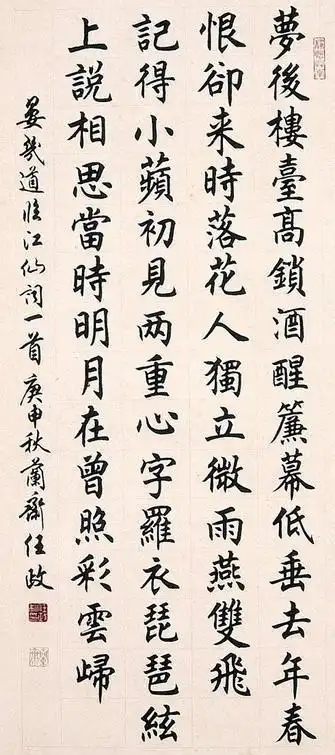 夢後樓臺高鎖酒醒簾幕低垂去年春
恨卻来時落花人獨立微雨燕雙飛
記得小蘋初見两重心字羅衣琵琶絃
上説相思當時明月在曾照彩雲歸
晏幾道臨江仙词一首庚申秋蘭齋任政